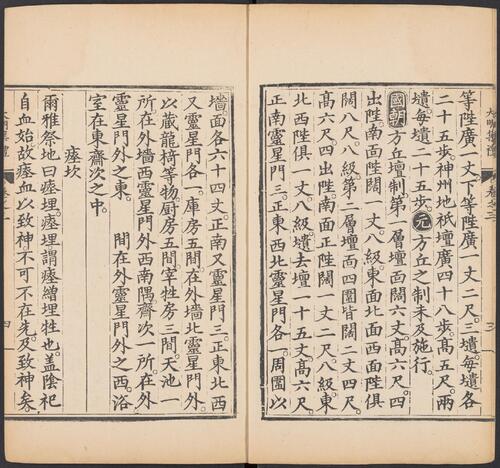 等陛廣一丈下等陛廣一丈二尺三壝每壝各
二十五步神州地祇壇廣四十八步高五尺兩
壝每壝二十五步元方丘之制未及施行
國朝方丘壇制第一層壇面闊六丈高六尺四
出陛南面陛闊一丈八級東面北面西面陛俱
闊八尺八級第二層壇面四圍皆闊二丈四尺
高六尺四出陛南面正陛闊一丈二尺八級東
北西陛俱一丈八級壝去壇一十五丈高六尺
正南靈星門三正東西北靈星門各一周圍以
墻面各六十四丈正南又靈星門三正東北西
又靈星門各一庫房五間在外墻北靈星門外
以藏龍椅等物厨房五間宰牲房三間天池一
所在外墻西靈星門外西南隅齋次一所在外
靈星門外之東　間在外靈星門外之西浴
室在東齋次之中
瘞坎
爾雅祭地曰瘞埋瘞埋謂瘞繒埋牲也蓋陰祀
自血始故瘞血以致神不可不在先及致神矣
三
四